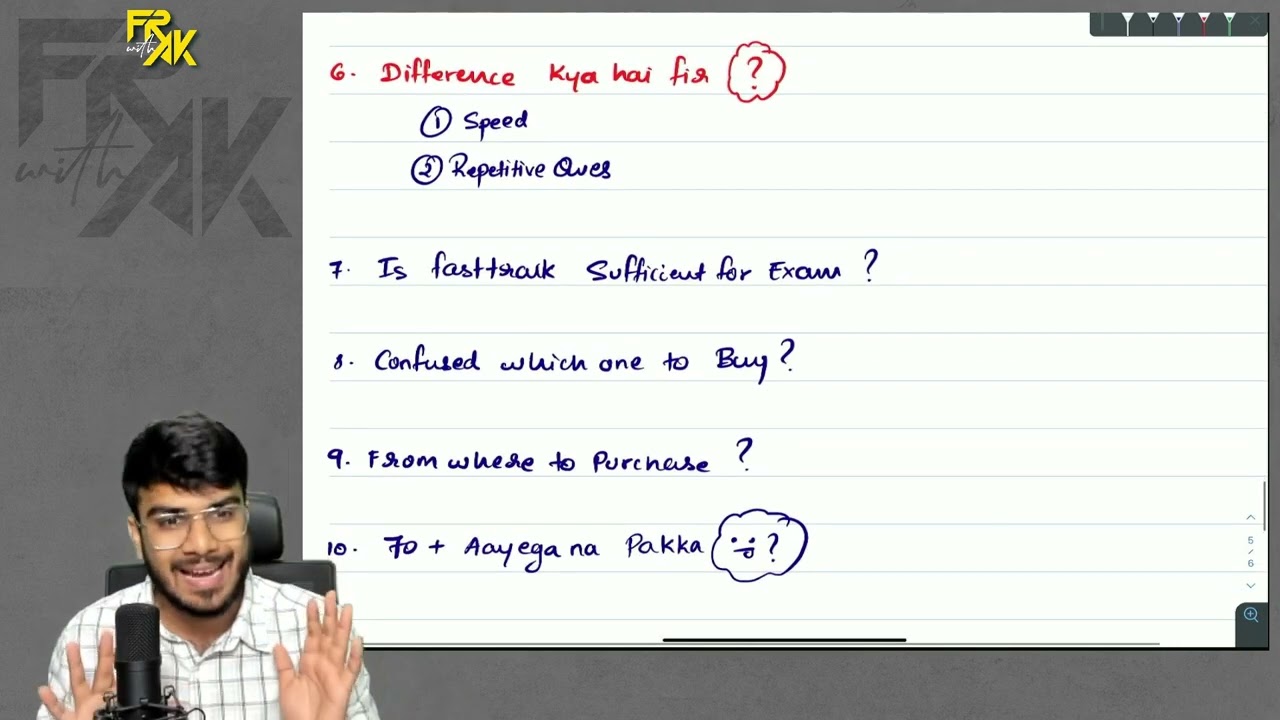 FR
with
AK
FR
with
AK
6. Difference Kya hai fir ?
① Speed
② Repetitive Ques
7. Is fasttrack Sufficient for Exam ?
8. Confused which one to Buy ?
9. From where to Purchase ?
10. 70 + Aayega na Pakka ?
5
/
6